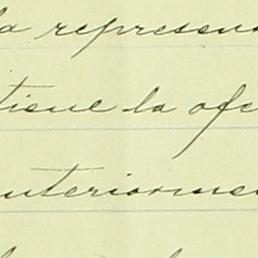 la represen
tiene la ofi
nteriormen